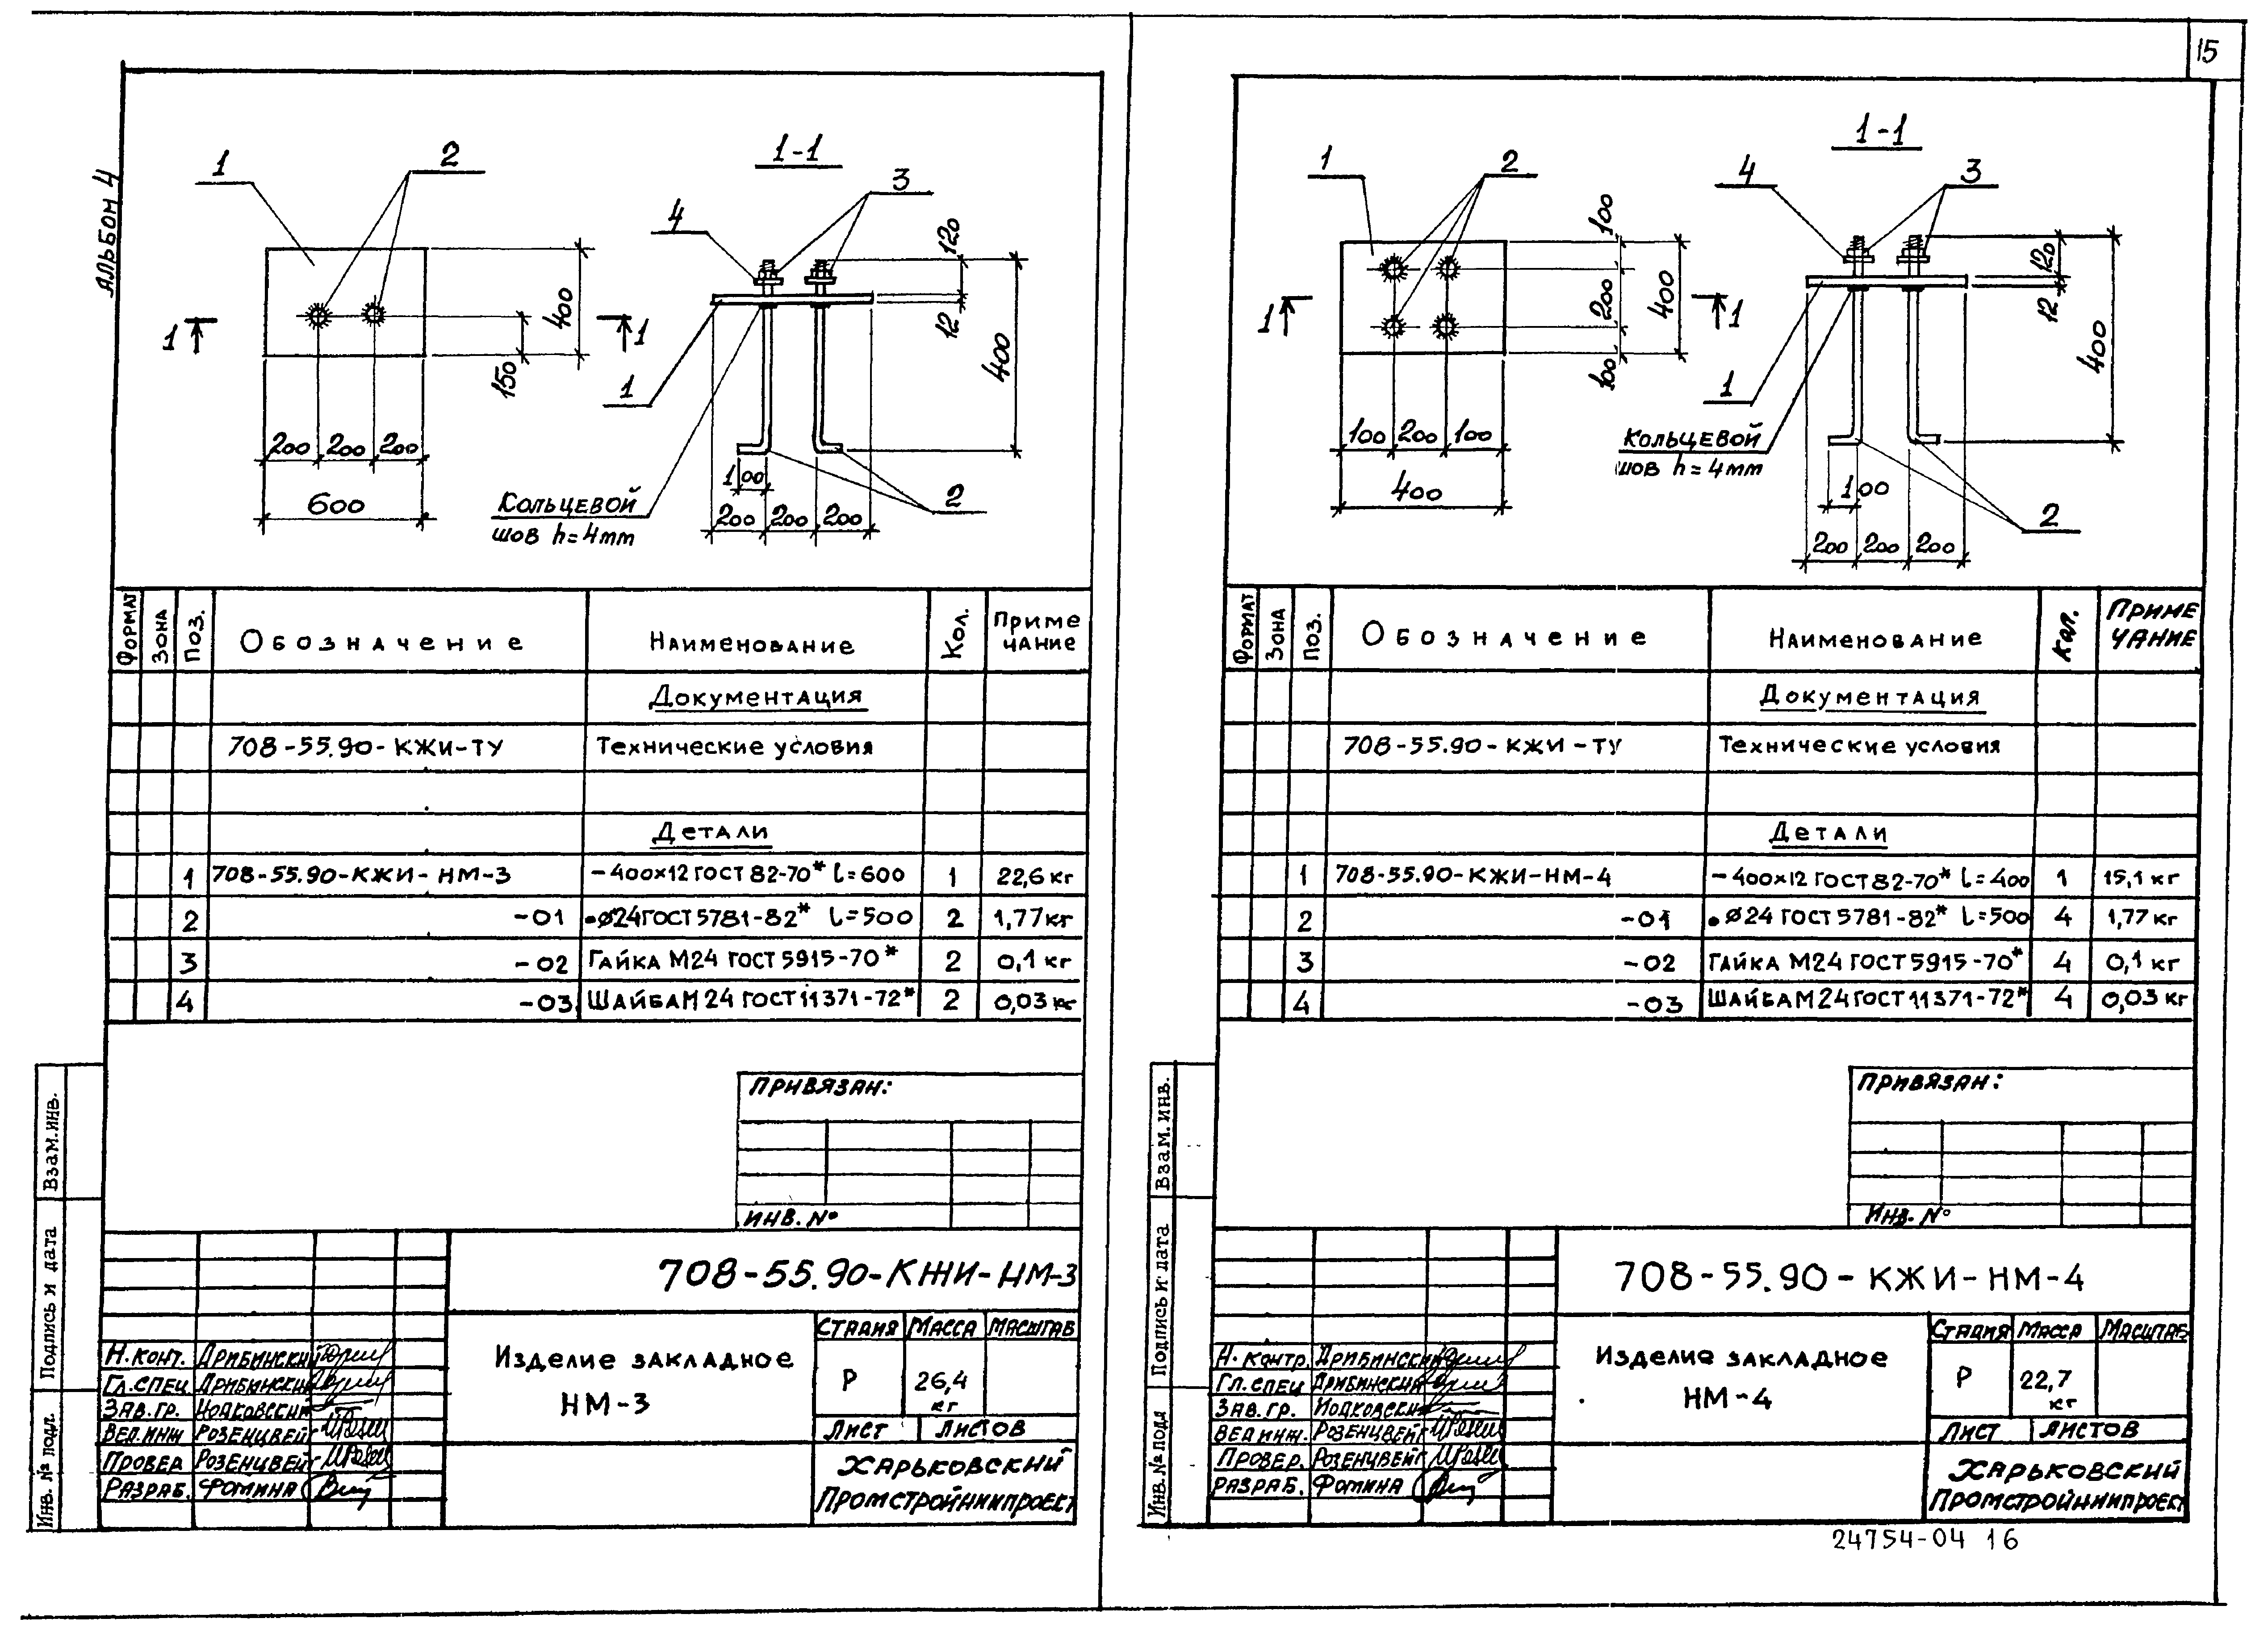 15
АЛЬБОМ 4
1
2
1-1
3
4
1
1
400
150
200 200 200
600
120
12
400
1
100
200 200 200
2
Кольцевой
шов h=4mm
Формат
Зона
Поз.
Обозначение
Наименование
Кол.
Приме
чание
Документация
708-55.90-КЖИ-ТУ Технические условия
Детали
1 708-55.90-КЖИ-НМ-3 -400х12 ГОСТ 82-70* l=600 1 22,6 кг
2 -01 •Ø24 ГОСТ 5781-82* l=500 2 1,77 кг
3 -02 Гайка М24 ГОСТ 5915-70* 2 0,1 кг
4 -03 Шайба М24 ГОСТ 11371-72* 2 0,03 кг
Привязан:
Инв. №
708-55.90-КЖИ-НМ-3
Изделие закладное
НМ-3
Стадия Масса Масштаб
Р 26,4
кг
Лист Листов
Харьковский
Промстройниипроект
Н.конт. Дрибинский
Гл.спец Дрибинский
Зав.гр.
Вед.инж Розенцвейг
Провер Розенцвейг
Разраб. Фомина
Взам.инв.
Подпись и дата
Инв. № подл.
1
2
1-1
4
3
1
1
100
200
100
400
100 200 100
400
120
12
400
1
Кольцевой
шов h=4mm
100
2
200 200 200
Формат
Зона
Поз.
Обозначение
Наименование
Кол.
Приме
чание
Документация
708-55.90-КЖИ-ТУ Технические условия
Детали
1 708-55.90-КЖИ-НМ-4 -400х12 ГОСТ 82-70* l=400 1 15,1 кг
2 -01 •Ø24 ГОСТ 5781-82* l=500 4 1,77 кг
3 -02 Гайка М24 ГОСТ 5915-70* 4 0,1 кг
4 -03 Шайба М24 ГОСТ 11371-72* 4 0,03 кг
Привязан:
Инв. №
708-55.90-КЖИ-НМ-4
Изделие закладное
НМ-4
Стадия Масса Масштаб
Р 22,7
кг
Лист Листов
Харьковский
Промстройниипроект
Н.контр. Дрибинский
Гл.спец Дрибинский
Зав.гр.
Вед инж. Розенцвейг
Провер. Розенцвейг
Разраб. Фомина
Взам.инв.
Подпись и дата
Инв.№ подл
24754-04 16